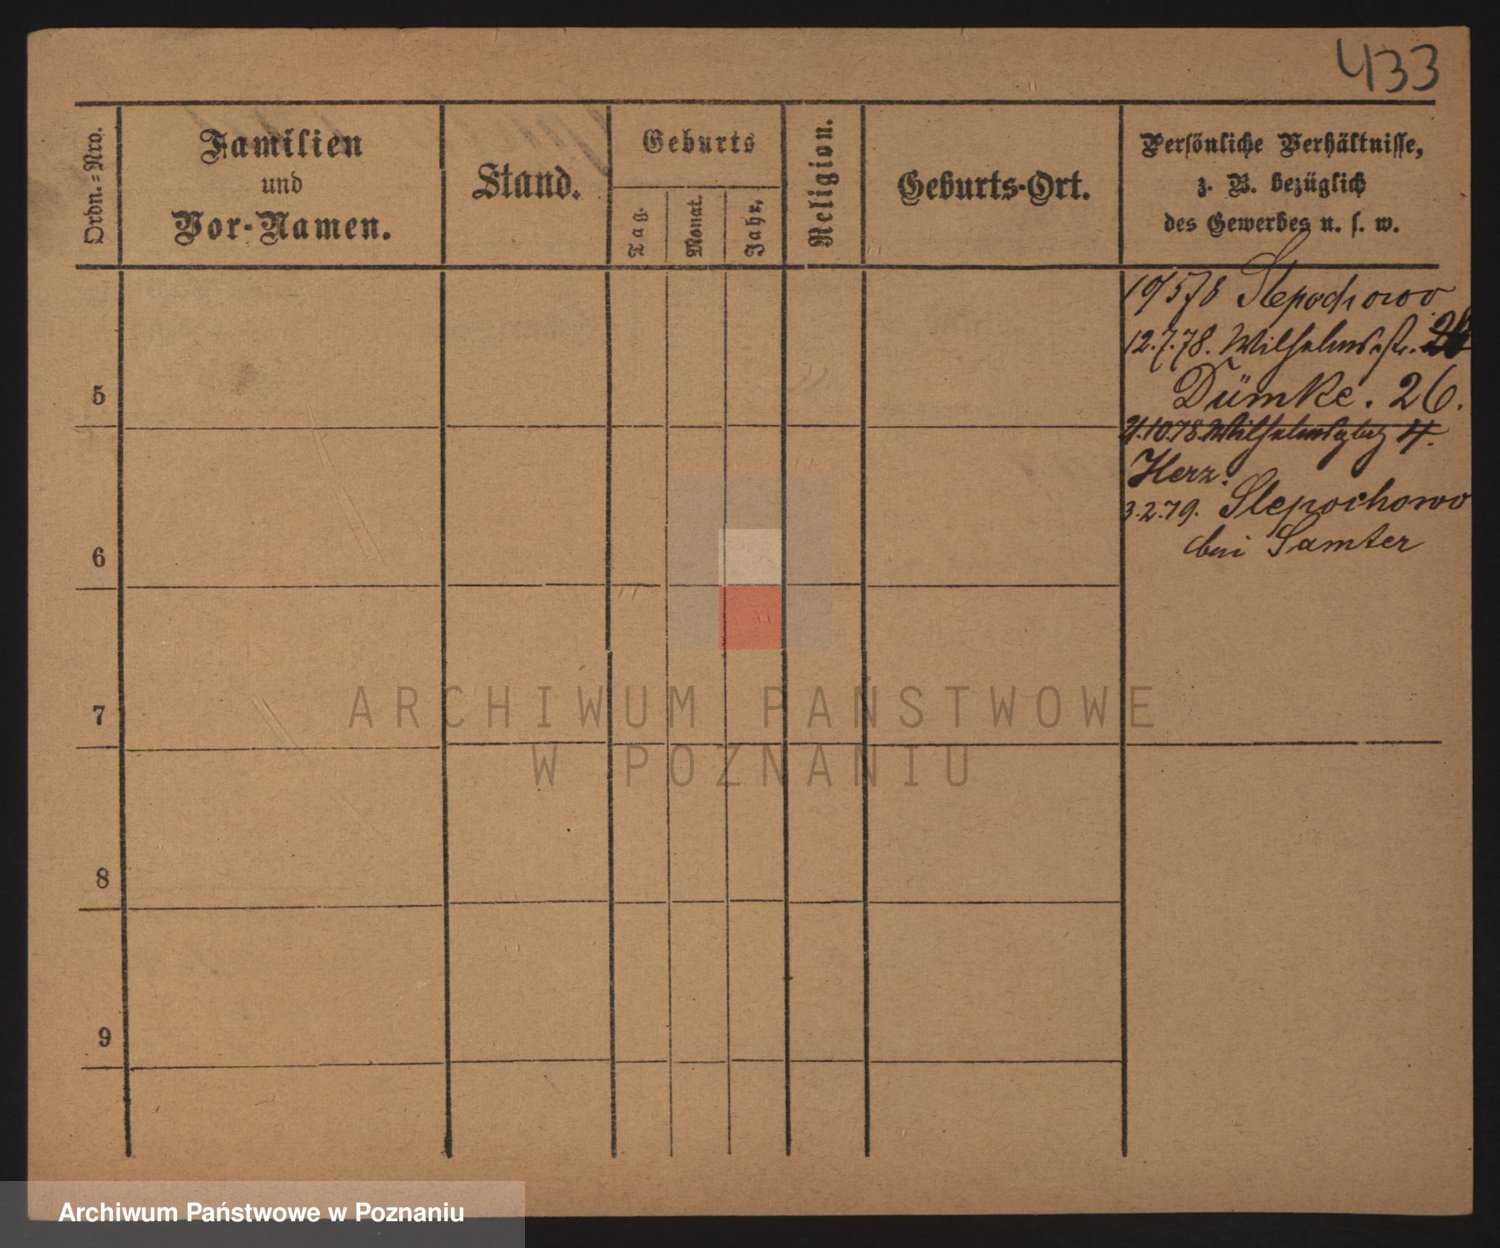 433
Ordn.-Nro.
Familien
und
Vor-Namen.
Stand.
Geburts
Tag.
Monat.
Jahr.
Religion.
Geburts-Ort.
Persönliche Verhältnisse,
z. B. bezüglich
des Gewerbes u. s. w.
19/5 78 Slepochowo
12.7.78. Wilhelmsstr. 26
Dümke. 26.
5
10.78. Wilhelmsplatz 4.
Herz.
3.2.79. Slepochowo
bei Samter
6
7
8
9
ARCHIWUM PAŃSTWOWE
W POZNANIU
Archiwum Państwowe w Poznaniu